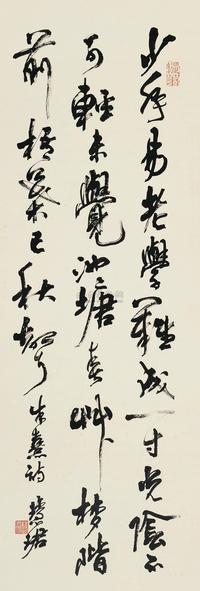 少年易老學難成一寸光陰不
可輕未覺池塘春草夢階
前梧葉已秋聲朱熹詩